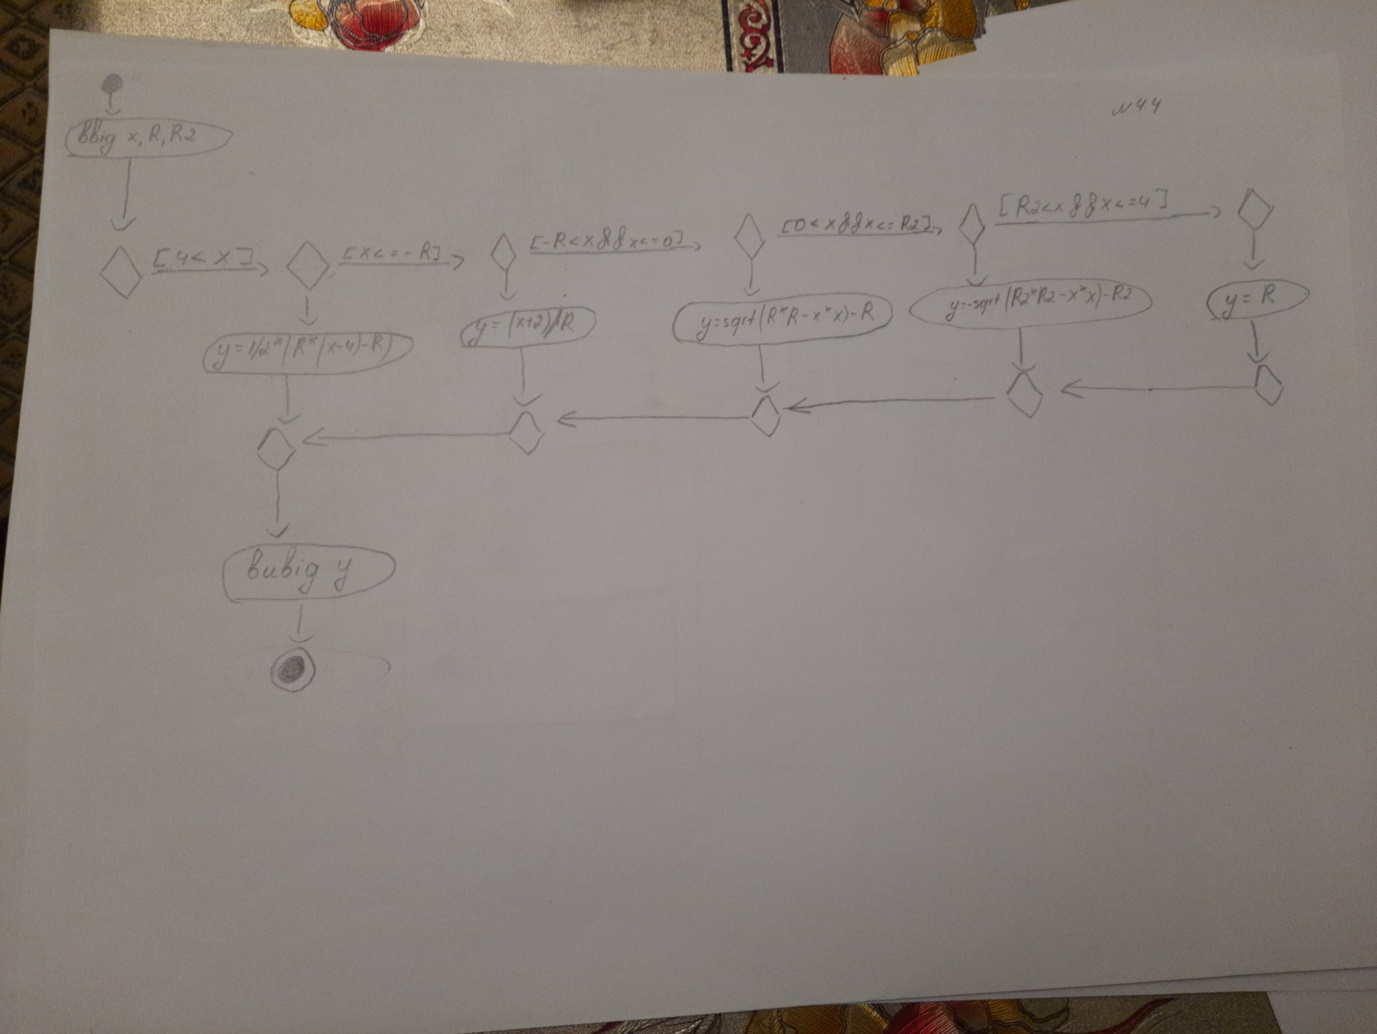 N 4.4
ввіg x, R, R2
[4<x]
[x<=-R]
[-R<x&&x<=0]
[0<x&&x<=R2]
[R2<x&&x<=4]
y=1/2*(R*(x-4)-R)
y=(x+2)/R
y=sqrt(R*R-x*x)-R
y=-sqrt(R2*R2-x*x)-R2
y=R
вивіg y